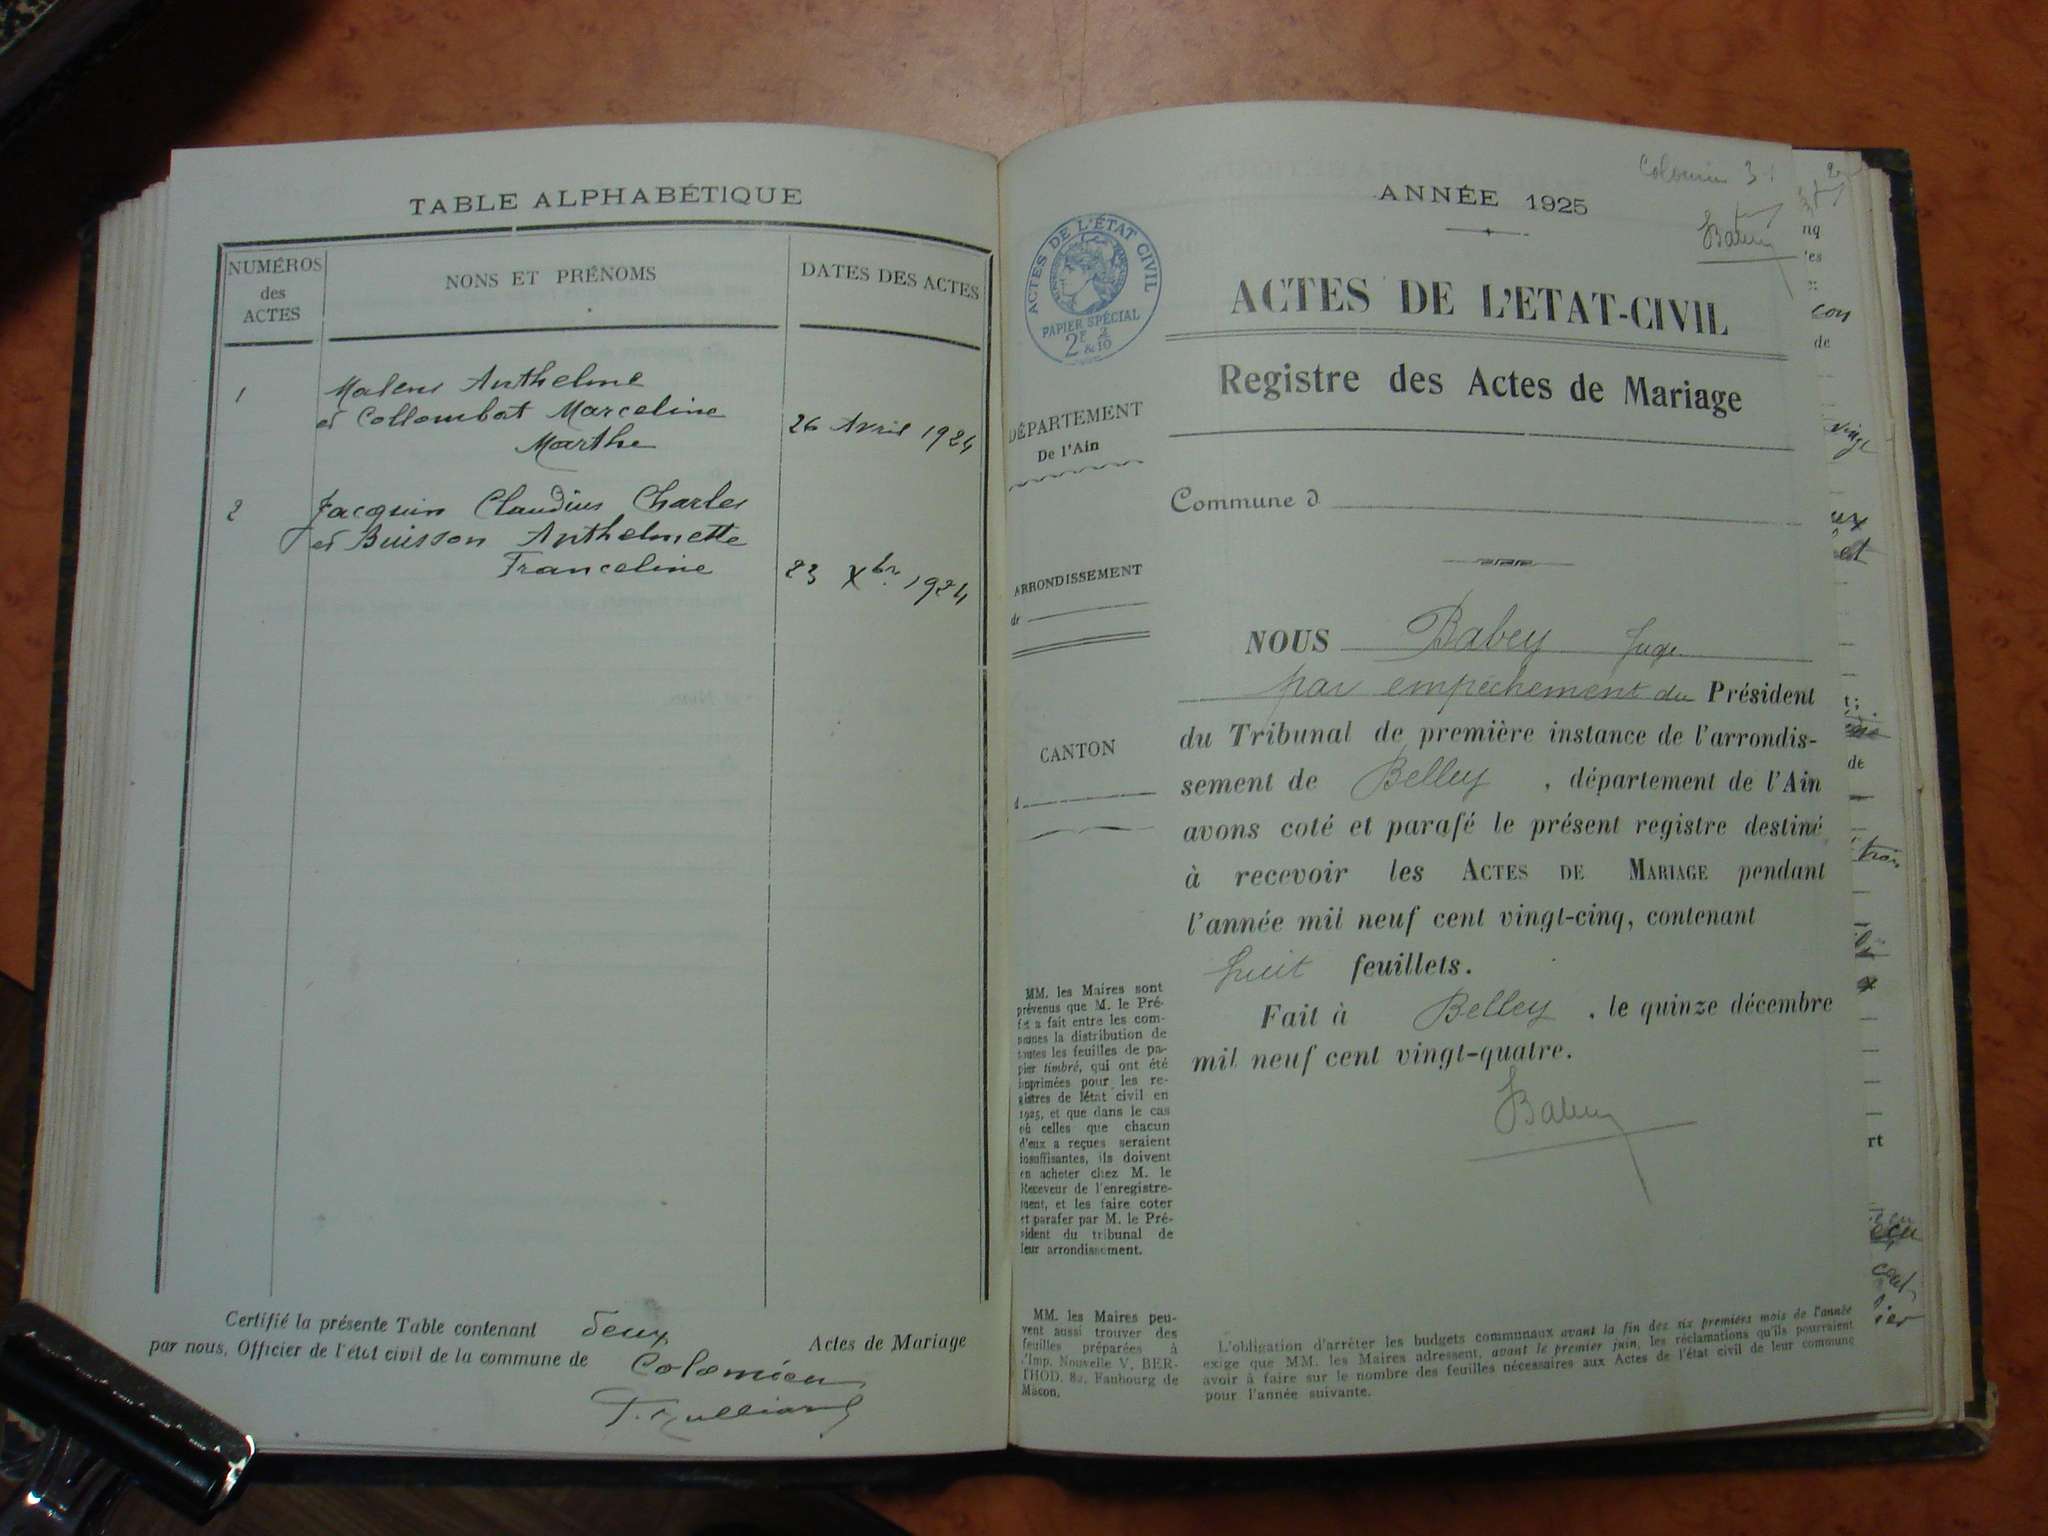 TABLE ALPHABÉTIQUE
NUMÉROS des ACTES
NONS ET PRÉNOMS
DATES DES ACTES
1
Malens Anthelme
et Collombat Marceline
Marthe
26 Avril 1924
2
Jacquin Claudius Charles
et Buisson Anthelmette
Franceline
23 Xbre 1924
Certifié la présente Table contenant deux Actes de Mariage
par nous, Officier de l'état civil de la commune de Colomieu
Colomieu
ANNÉE 1925
Babey
ACTES DE L'ÉTAT CIVIL
PAPIER SPÉCIAL
2F 2
& 10
ACTES DE L'ETAT-CIVIL
Registre des Actes de Mariage
DÉPARTEMENT
De l'Ain
Commune d
ARRONDISSEMENT
de
CANTON
d
NOUS Babey Juge
par empêchement du Président
du Tribunal de première instance de l'arrondis-
sement de Belley, département de l'Ain
avons coté et parafé le présent registre destiné
à recevoir les ACTES DE MARIAGE pendant
l'année mil neuf cent vingt-cinq, contenant
huit feuillets.
Fait à Belley, le quinze décembre
mil neuf cent vingt-quatre.
Babey
MM. les Maires sont
prévenus que M. le Pré-
fet a fait entre les com-
munes la distribution de
toutes les feuilles de pa-
pier timbré, qui ont été
imprimées pour les re-
gistres de l'état civil en
1925, et que dans le cas
où celles que chacun
d'eux a reçues seraient
insuffisantes, ils doivent
en acheter chez M. le
Receveur de l'enregistre-
ment, et les faire coter
et parafer par M. le Pré-
sident du tribunal de
leur arrondissement.
MM. les Maires peu-
vent aussi trouver des
feuilles préparées à
l'Imp. Nouvelle V. BER-
THOD, 82, Faubourg de
Mâcon.
L'obligation d'arrêter les budgets communaux avant la fin des six premiers mois de l'année
exige que MM. les Maires adressent, avant le premier juin, les réclamations qu'ils pourraient
avoir à faire sur le nombre des feuilles nécessaires aux Actes de l'état civil de leur commune
pour l'année suivante.
nq
es
con
de
vingt
ux
et
de
rt
ier